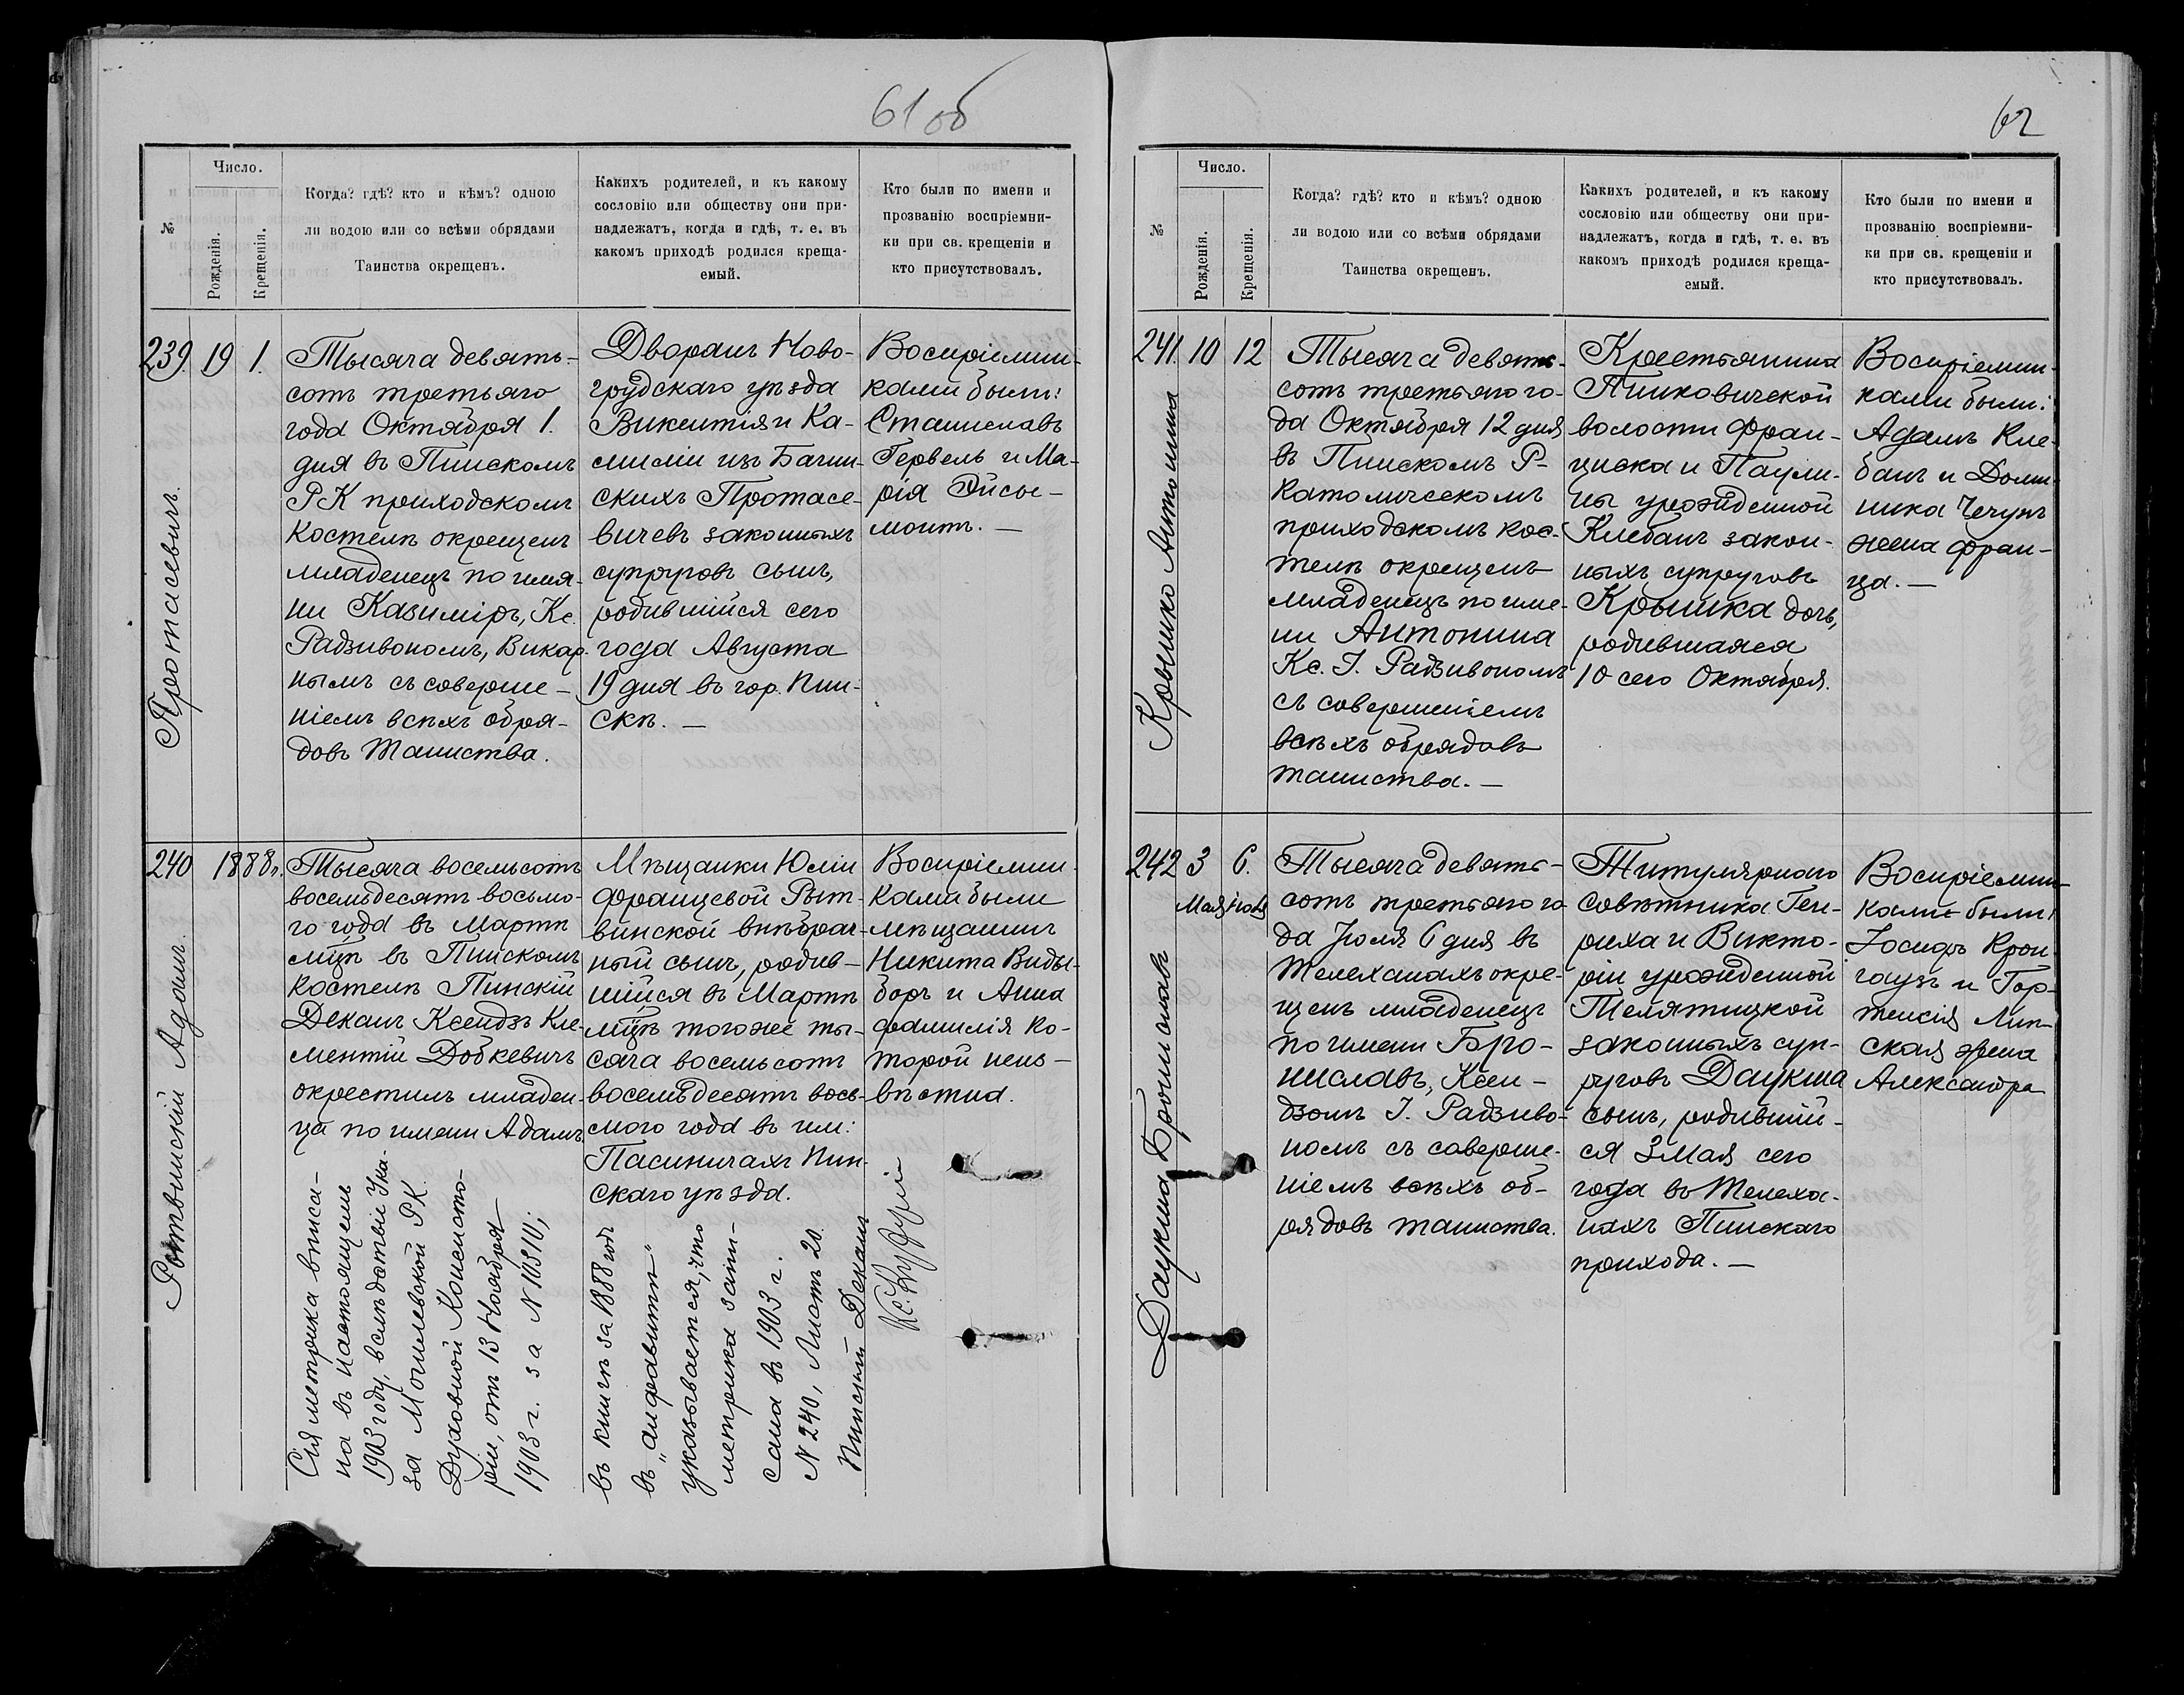 61 об
№
Число.
Рожденія.
Крещенія.
Когда? гдѣ? кто и кѣмъ? одною
ли водою или со всѣми обрядами
Таинства окрещенъ.
Какихъ родителей, и къ какому
сословію или обществу они при-
надлежатъ, когда и гдѣ, т. е. въ
какомъ приходѣ родился креща-
емый.
Кто были по имени и
прозванію воспріемни-
ки при св. крещеніи и
кто присутствовалъ.
239. 19 1.
Протасевичъ.
Тысяча девять-
сотъ третьяго
года Октября 1.
дня въ Пинскомъ
РК приходскомъ
костелѣ окрещенъ
младенецъ по имя-
ни Казимiръ, Кс.
Радзивономъ, Викар.
нымъ съ соверше-
ніемъ всѣхъ обря-
довъ Таинства.
Дворянъ Ново-
грудскаго уѣзда
Викентія и Ка-
миліи изъ Бачин-
скихъ Протасе-
вичевъ законныхъ
супруговъ сынъ,
родившійся сего
года Августа
19 дня въ гор. Пин-
скѣ. —
Воспріемни-
ками были:
Станиславъ
Гервель и Ма-
рія Эйсы-
монтъ. —
240 1888г.
Ротвинскій Адамъ.
Тысяча восемьсотъ
восемьдесятъ восьмо-
го года въ Мартѣ
м̃цѣ въ Пинскомъ
костелѣ Пинскій
Деканъ Ксендзъ Кле-
ментій Добкевичъ
окрестилъ младен-
ца по имени Адамъ
Мѣщанки Юліи
Францевой Рыт-
винской внѣбрач-
ный сынъ, родив-
шійся въ Мартѣ
м̃цѣ того же ты-
сяча восемьсотъ
восемьдесятъ вось-
мого года въ им:
Пасиничахъ Пин-
скаго уѣзда.
Воспріемни-
ками были
мѣщанинъ
Никита Виды-
боръ и Анна
фамилія ко-
торой неиз-
вѣстна.
Сія метрика вписа-
на въ настоящемъ
1903 году, вслѣдствіи Ука-
за Могилевской РК.
Духовной Консисто-
ріи, отъ 13 Ноября
1903 г. за № 10910;
въ книгѣ за 1888 годъ
въ „алфавитѣ“
указывается, что
метрика запи-
сана въ 1903 г.
№ 240, Листъ 20.
Пинскій Деканъ
62
№
Число.
Рожденія.
Крещенія.
Когда? гдѣ? кто и кѣмъ? одною
ли водою или со всѣми обрядами
Таинства окрещенъ.
Какихъ родителей, и къ какому
сословію или обществу они при-
надлежатъ, когда и гдѣ, т. е. въ
какомъ приходѣ родился креща-
емый.
Кто были по имени и
прозванію воспріемни-
ки при св. крещеніи и
кто присутствовалъ.
241. 10 12
Крышко Антонина
Тысяча девять-
сотъ третьяго го-
да Октября 12 дня
въ Пинскомъ Р-
Католическомъ
приходскомъ кос-
телѣ окрещенъ
младенецъ по име-
ни Антонина
Кс. І. Радзивономъ
съ совершеніемъ
всѣхъ обрядовъ
таинства. —
Крестьянина
Пинковичской
волости Фран-
циска и Паули-
ны урожденной
Клебанъ закон-
ныхъ супруговъ
Крышка дочь,
родившаяся
10 сего Октября.
Воспріемни-
ками были:
Адамъ Кле-
банъ и Доми-
ника Чечунъ
жена Фран-
ца. —
242 3 6.
Мая Іюля
Даукша Брониславъ
Тысяча девять-
сотъ третьяго го
да Іюля 6 дня въ
Телеханахъ окре-
щенъ младенецъ
по имени Бро-
ниславъ, Ксен-
дзомъ І. Радзиво-
номъ съ соверше-
ніемъ всѣхъ об-
рядовъ таинства.
Титулярнаго
Совѣтника Ген-
риха и Викто-
ріи урожденной
Телятицкой
законныхъ суп-
руговъ Даукша
сынъ, родивший-
ся 3 Мая сего
года въ Телеха-
нахъ Пинскаго
прихода. —
Воспріемни-
ками были:
Іосифъ Крон-
гаузъ и Гор-
тензія Лип-
ская жена
Александра